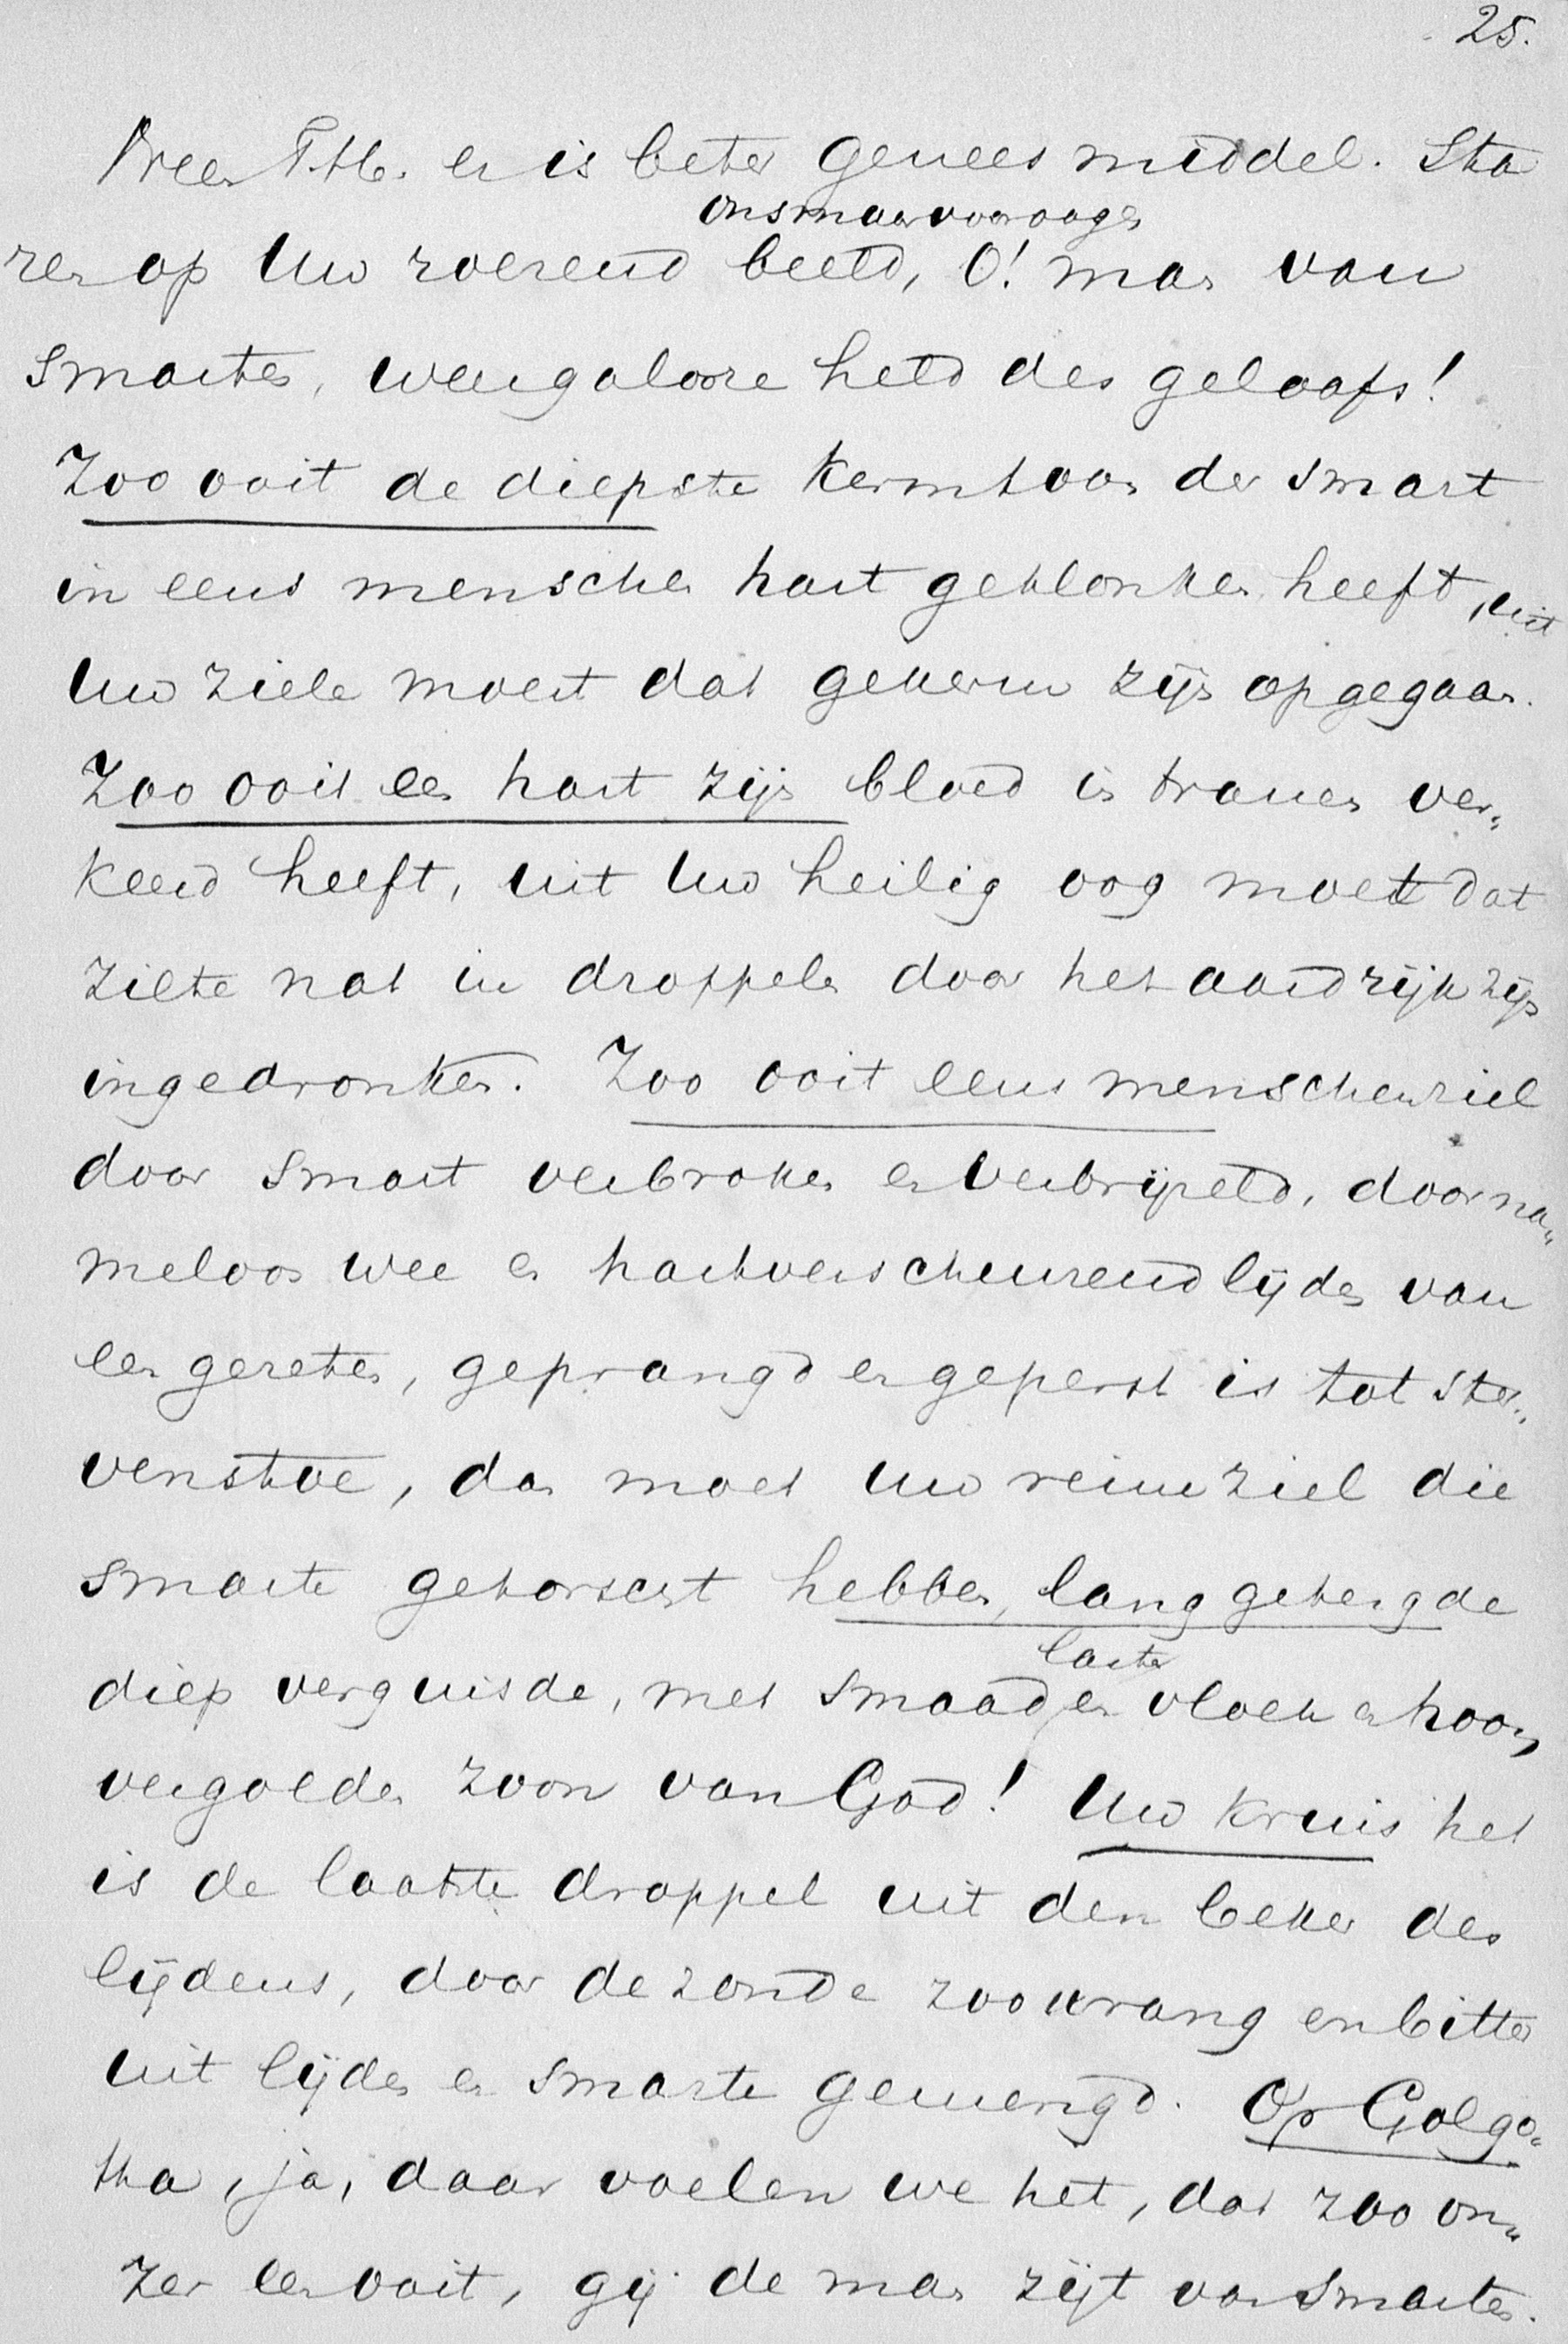 25.
Neen T.H. er is beter geneesmiddel. Sta
ons maar voor oogen
ren op Uw roerend beeld, O! man van
smarten, weergaloore held des geloofs!
Zoo ooit de diepste kermtoon der smart
in eens menschen hart geklonken heeft, uit
Uw ziele moest dat gekerm zijn opgegaan.
Zoo ooit een hart zijn bloed in tranen ver„
keerd heeft, uit Uw heilig oog moet dat
zilte nat in droppelen door het aardrijk zijn
ingedronken. Zoo ooit eens menschenziel
door smart verbroken en verbrijzeld, door na„
meloos wee en hartverscheurend lijden van
een gereten, geprangd en geperst is tot ster„
venstoe, dan moet Uw reine ziel die
smarte getorscht hebben, lang getergde
laster
diep verguisde, met smaad en vloek en hoon
vergolden zoon van God! Uw kruis het
is de laatste droppel uit den beker des
lijdens, door de zonde zoo wrang en bitter
uit lijden en smarte gemengd. Op Golgo„
tha, ja, daar voelen we het, dat zoo on„
zer een ooit, gij de man zijt van smarten.